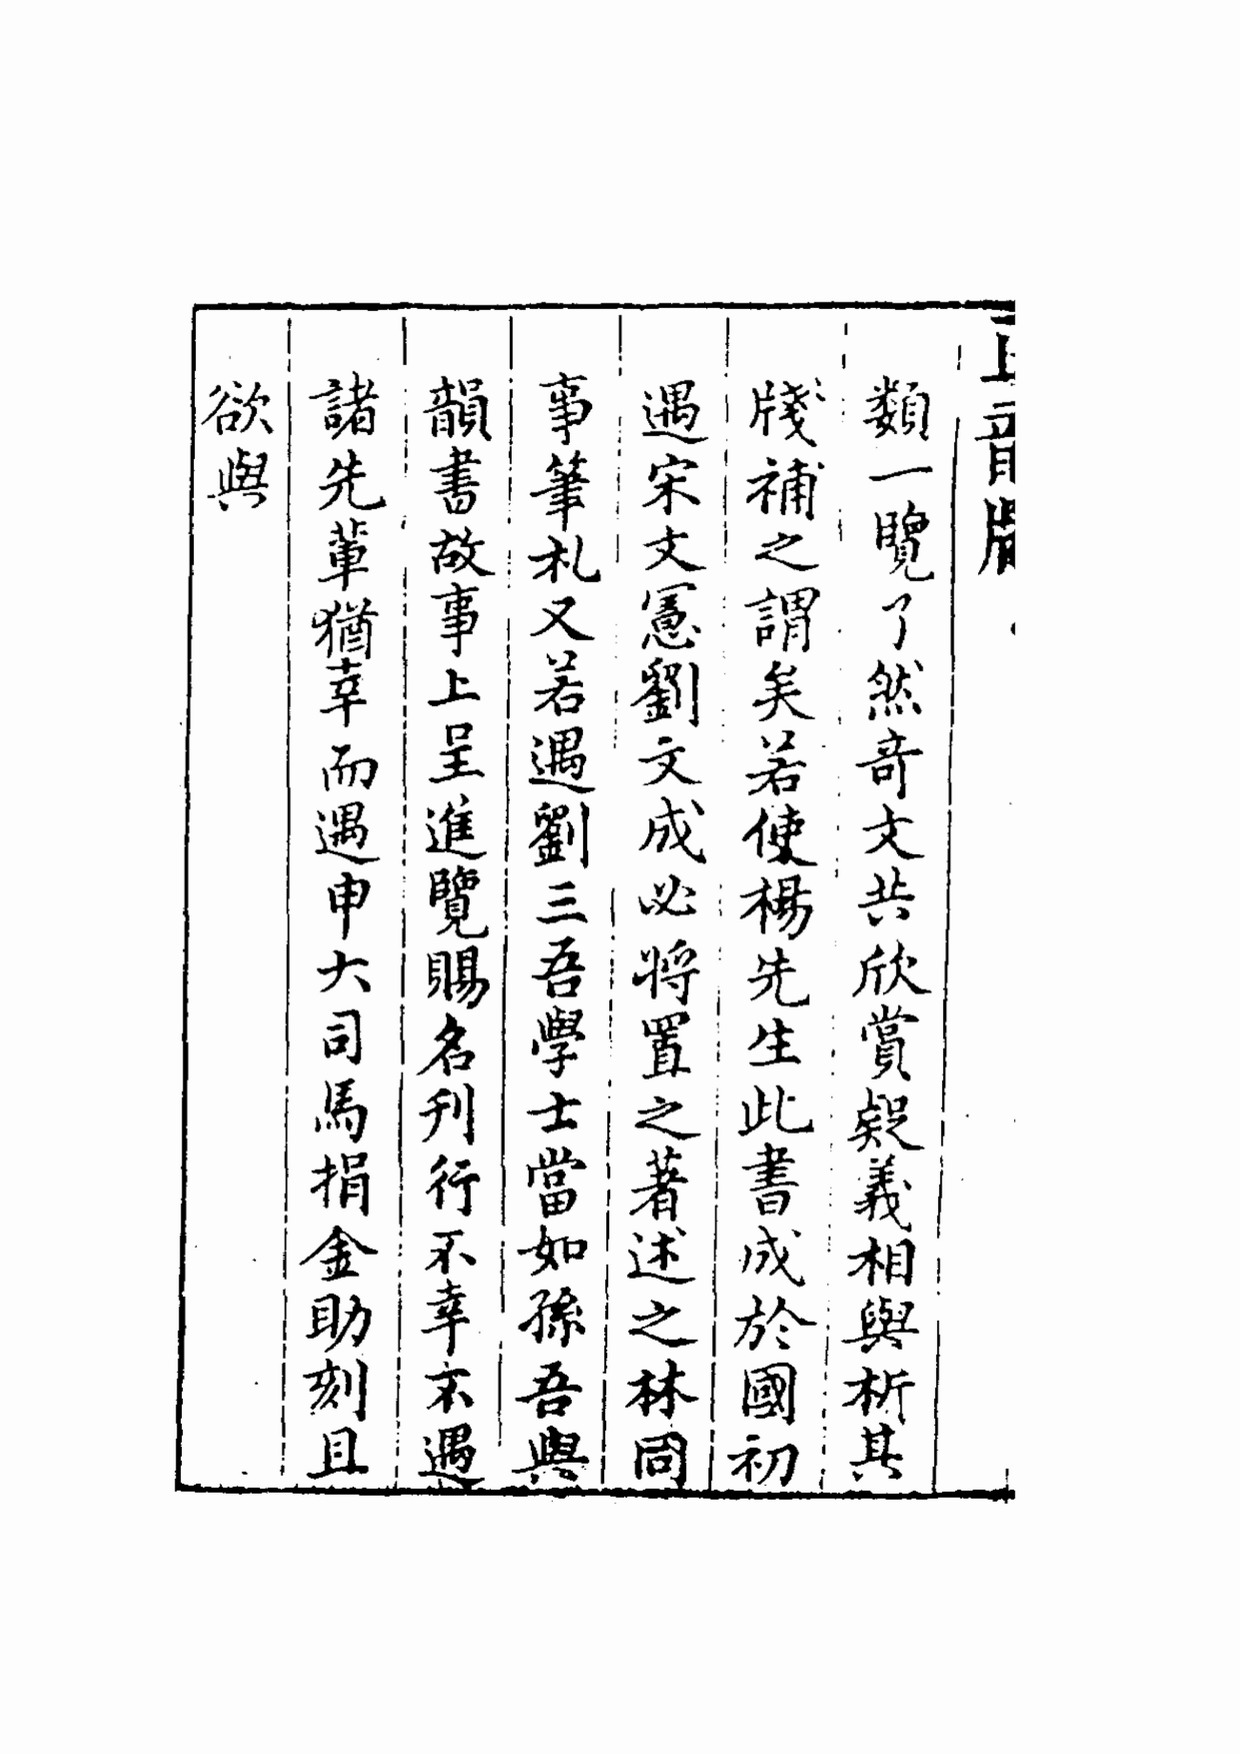 類一覽了然奇文共欣賞疑義相與析其
牋補之謂矣若使楊先生此書成於國初
遇宋文憲劉文成必將置之著述之林同
事筆札又若遇劉三吾學士當如孫吾與
韻書故事上呈進覽賜名刊行不幸不遇
諸先輩猶幸而遇申大司馬捐金助刻且
欲與